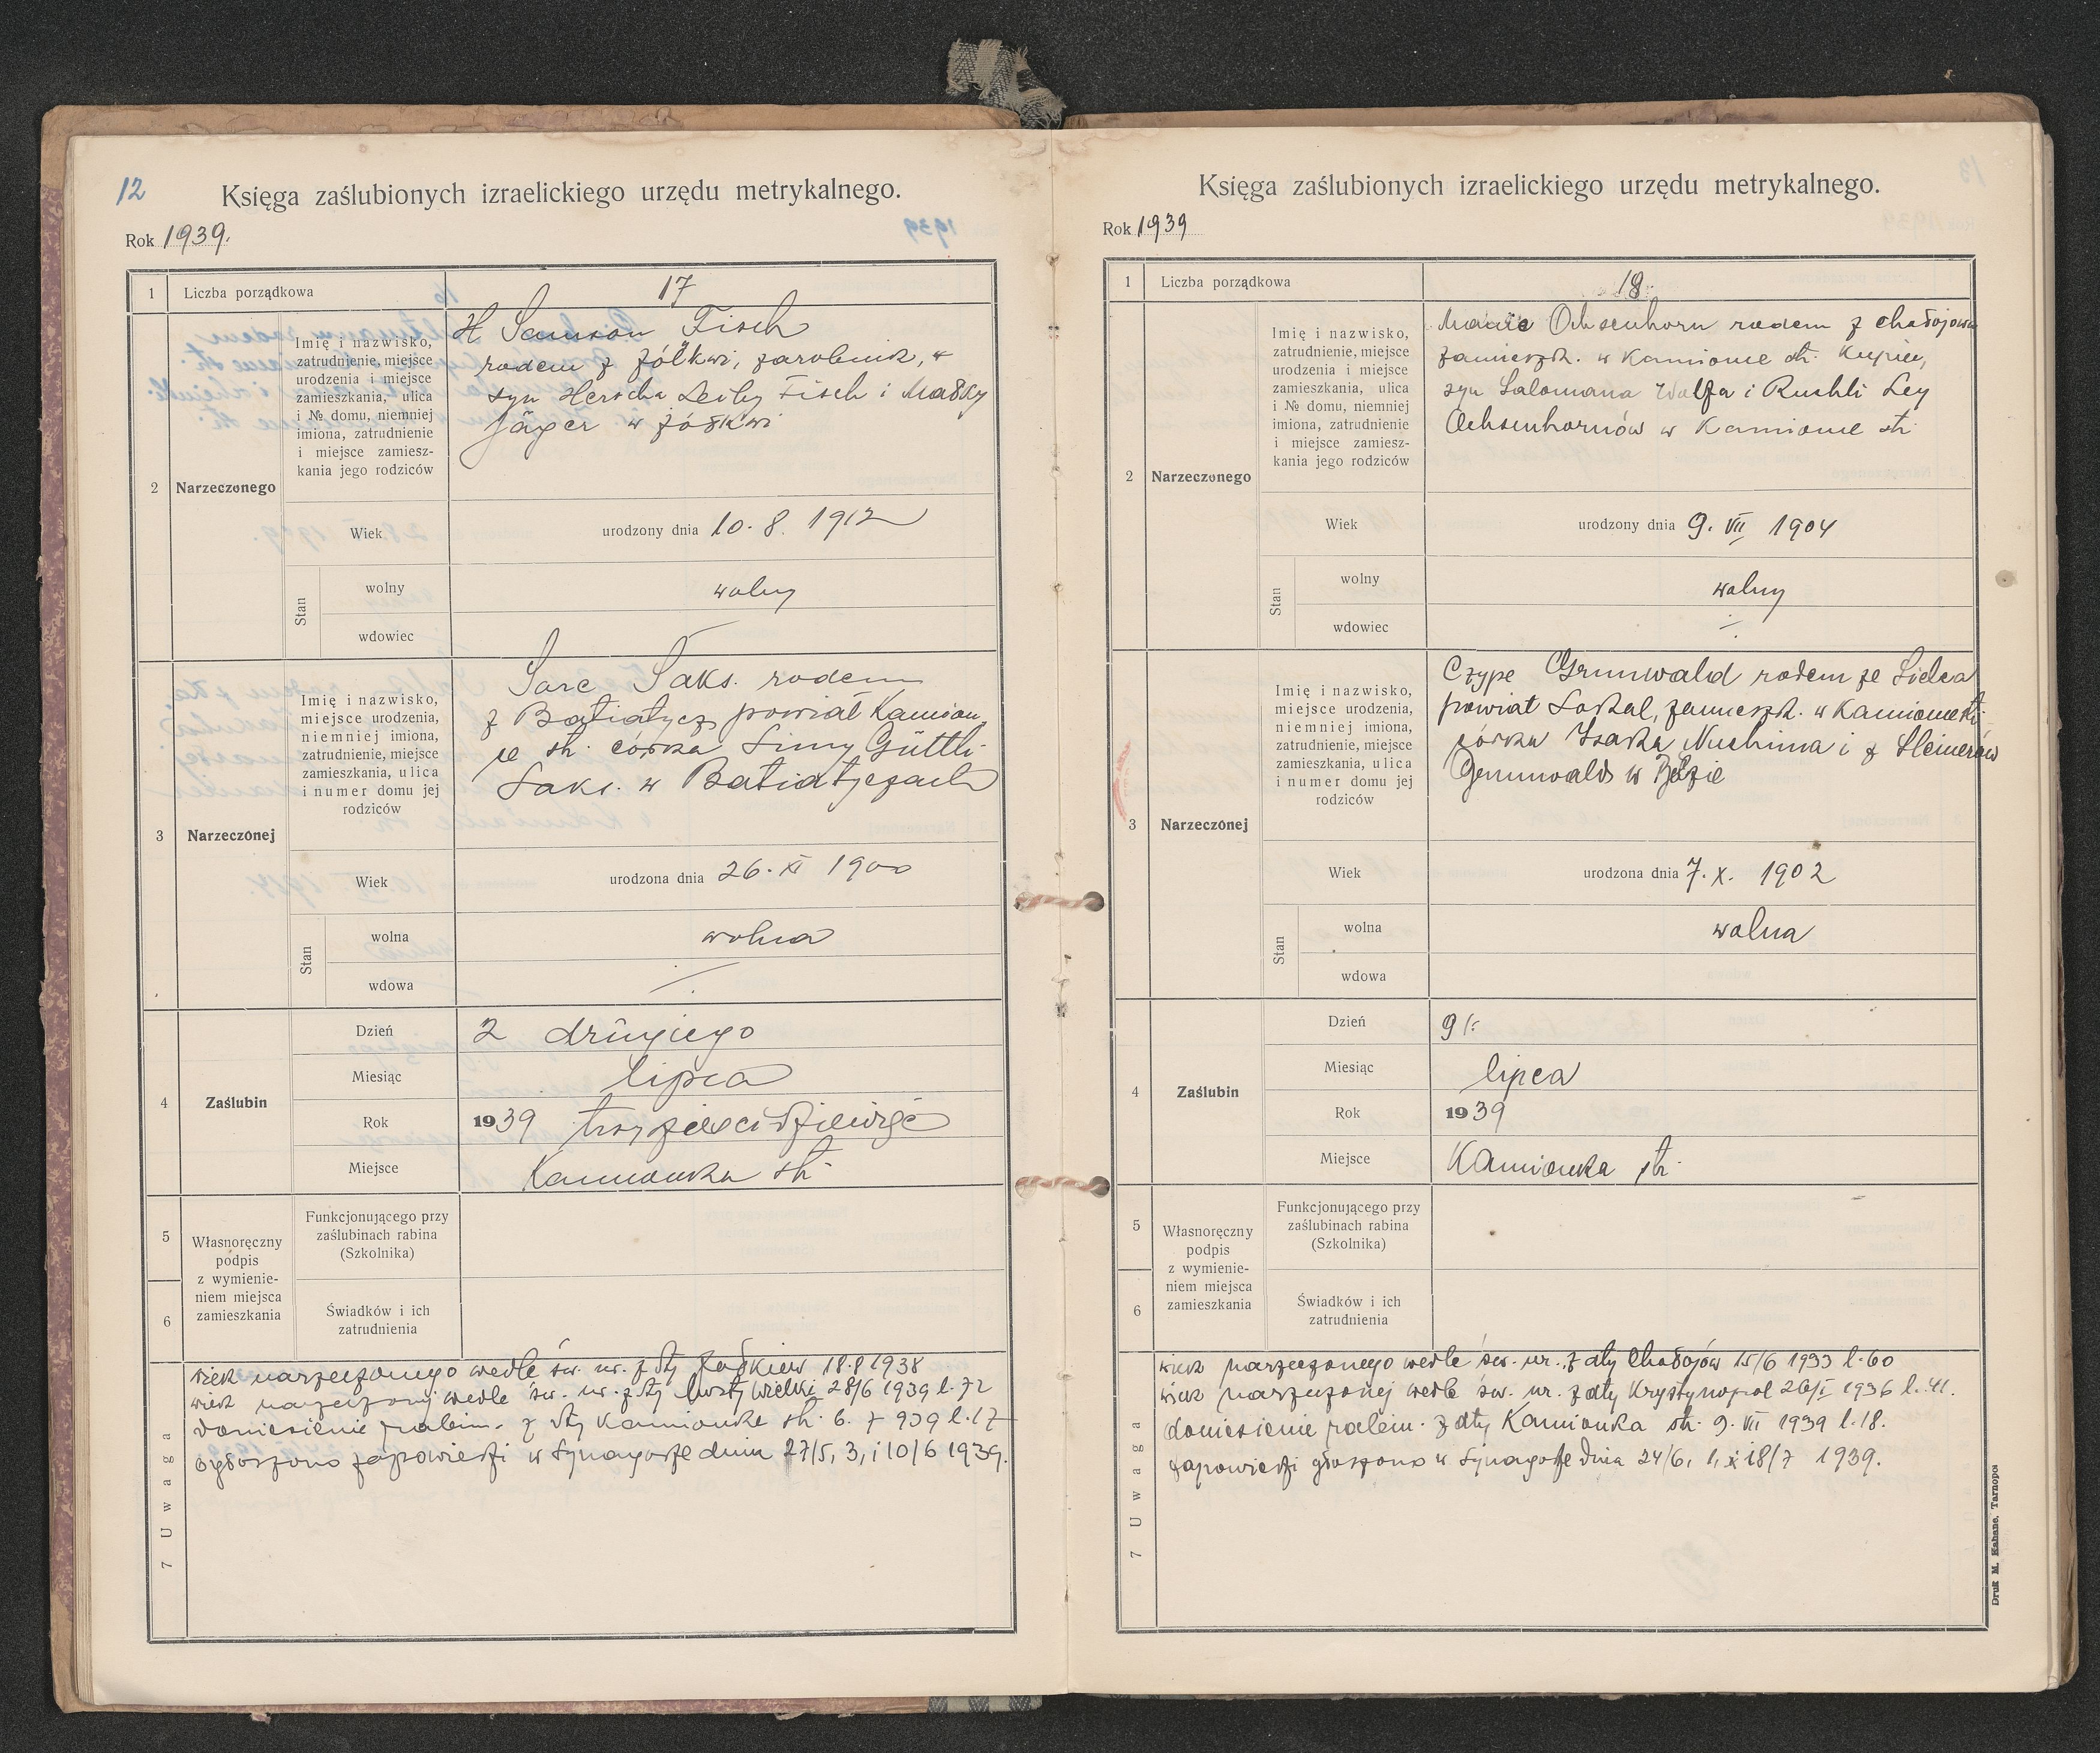 12
Księga zaślubionych izraelickiego urzędu metrykalnego.
Rok 1939.
1 Liczba porządkowa 17
2 Narzeczonego
Imię i nazwisko,
zatrudnienie, miejsce
urodzenia i miejsce
zamieszkania, ulica
i № domu, niemniej
imiona, zatrudnienie
i miejsce zamiesz-
kania jego rodziców
H Samson Fisch
rodem z Żółkwi, zarobnik,
syn Herscha Leiby Fisch i Małky
Jäger w Żółkwi
Wiek urodzony dnia 10. 8. 1912
Stan
wolny wolny
wdowiec
3 Narzeczónej
Imię i nazwisko,
miejsce urodzenia,
niemniej imiona,
zatrudnienie, miejsce
zamieszkania, ulica
i numer domu jej
rodziców
Sare Saks. rodem
z Batiatycz powiat Kamion
ce st. córka Simy Güttli
Saks. w Batiatyczach
Wiek urodzona dnia 26. XI 1900
Stan
wolna wolna
wdowa
4 Zaślubin
Dzień 2 drugiego
Miesiąc lipca
Rok 1939 trzydzieści dziewięć
Miejsce Kamionka st.
5
6
Własnoręczny
podpis
z wymienie-
niem miejsca
zamieszkania
Funkcjonującego przy
zaślubinach rabina
(Szkolnika)
Świadków i ich
zatrudnienia
7 Uwaga
wiek narzeczonego wedle św. ur. z dty Żółkiew 18.8 1938
wiek narzeczonej wedle św. ur. z dty Mosty Wielki 28/6 1939 l. 72
doniesienie zalein. z dty Kamionka st. 6. 7 939 l. 17
ogłoszono zapowiedzi w Synagodze dnia 27/5, 3, i 10/6 1939.
Księga zaślubionych izraelickiego urzędu metrykalnego.
Rok 1939
1 Liczba porządkowa 18
2 Narzeczonego
Imię i nazwisko,
zatrudnienie, miejsce
urodzenia i miejsce
zamieszkania, ulica
i № domu, niemniej
imiona, zatrudnienie
i miejsce zamiesz-
kania jego rodziców
Ochsenhorn rodem z Chołojowa
zamieszk. w Kamionce st. Kupiec,
syn Salomana Wolfa i Ruchli Ley
Ochsenhornów w Kamionce st.
Wiek urodzony dnia 9. VII 1904
Stan
wolny wolny
wdowiec
3 Narzeczónej
Imię i nazwisko,
miejsce urodzenia,
niemniej imiona,
zatrudnienie, miejsce
zamieszkania, ulica
i numer domu jej
rodziców
Czype Grunwald rodem ze Sielca
powiat Sokal, zamieszk. w Kamionce st.
córka Izaka Nuchima i z Steinerów
Grunwald w Bełzie
Wiek urodzona dnia 7. X. 1902
Stan
wolna wolna
wdowa
4 Zaślubin
Dzień 9
Miesiąc lipca
Rok 1939
Miejsce Kamionka st.
5
6
Własnoręczny
podpis
z wymienie-
niem miejsca
zamieszkania
Funkcjonującego przy
zaślubinach rabina
(Szkolnika)
Świadków i ich
zatrudnienia
7 Uwaga
wiek narzeczonego wedle św. ur. z dty Chołojów 15/6 1933 l. 60
wiek narzeczonej wedle św. ur. z dty Krystynopol 26/I 1936 l. 41.
doniesienie zalein. z dty Kamionka st. 9. VII 1939 l. 18.
zapowiedzi głoszono w Synagodze dnia 24/6, 1, i 8/7 1939.
Druk M. Kahane, Tarnopol